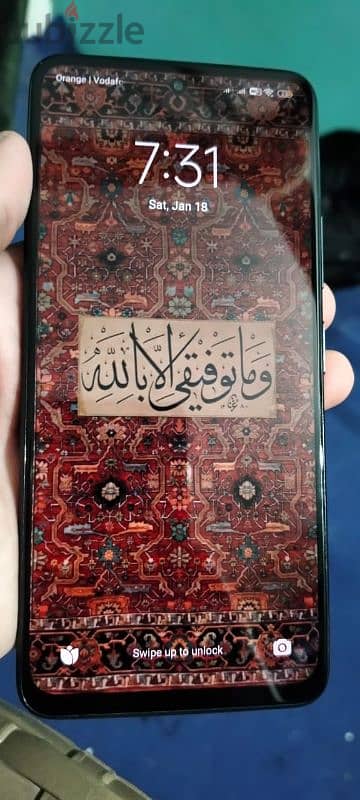 dubizzle
Orange | Vodafo
7:31
Sat, Jan 18
وما توفيقي إلا بالله
Swipe up to unlock